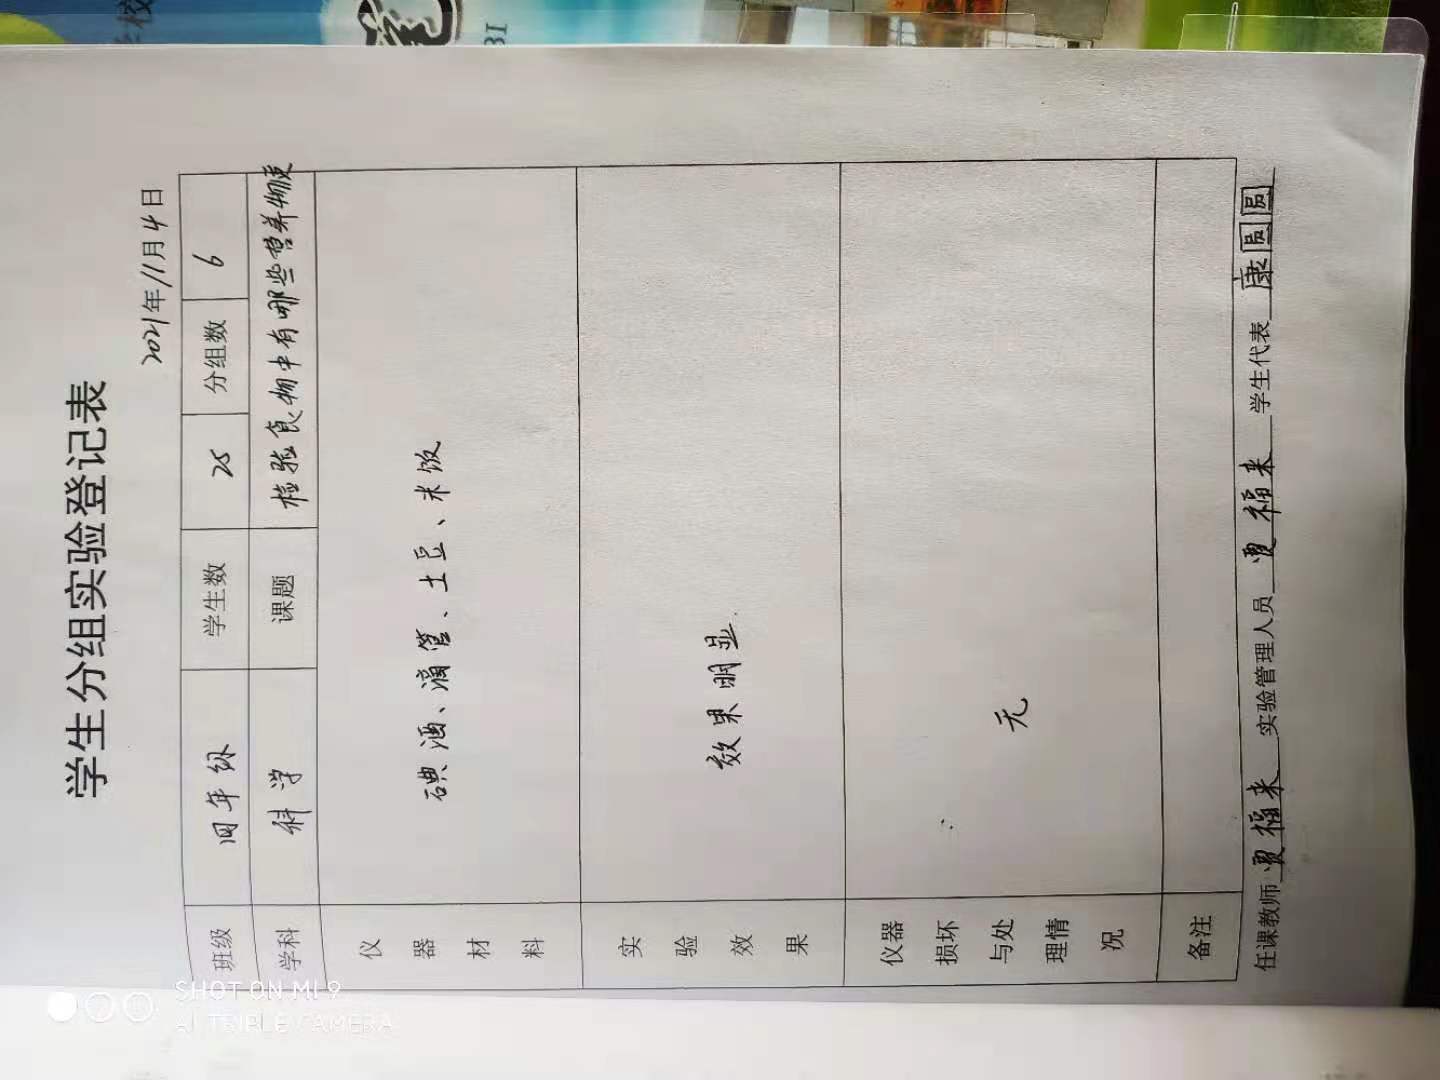 学生分组实验登记表
2021年11月4日
班级 四年级 学生数 25 分组数 6
学科 科学 课题 检验食物中有哪些营养物质
仪器材料 碘酒、滴管、土豆、米饭
实验效果 效果明显.
仪器损坏与处理情况 无
备注
任课教师 贾福来 实验管理人员 贾福来 学生代表 康圆圆
SHOT ON MI 9
AI TRIPLE CAMERA